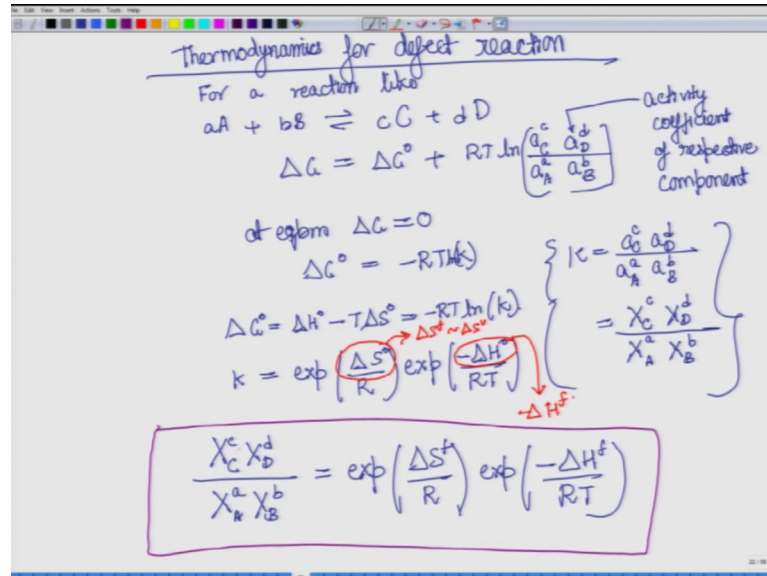 File Edit View Insert Actions Tools Help
Thermodynamics for defect reaction
For a reaction like
aA + bB ⇌ cC + dD
ΔG = ΔG° + RT ln(a_C^c a_D^d / a_A^a a_B^b)
activity
coefficient
of respective
component
at eqbm ΔG = 0
ΔG° = -RT ln(K)
{ K = a_C^c a_D^d / a_A^a a_B^b
= X_C^c X_D^d / X_A^a X_B^b }
ΔG° = ΔH° - TΔS° = -RT ln(K)
→ ΔS^f ~ ΔS^v
K = exp(ΔS°/R) exp(-ΔH°/RT)
-ΔH^f.
X_C^c X_D^d / X_A^a X_B^b = exp(ΔS^f/R) exp(-ΔH^f/RT)